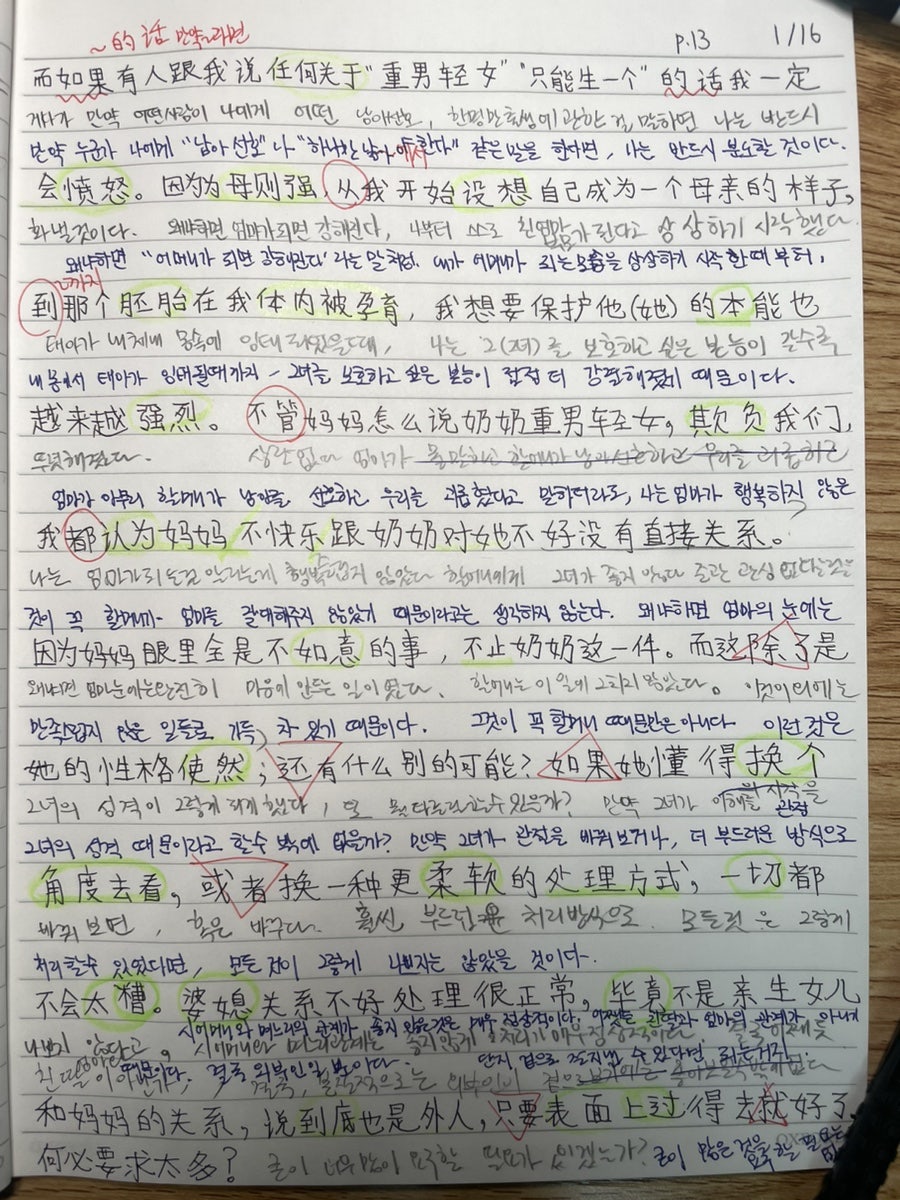 ~的话 만약~라면
p.13 1/16
而如果有人跟我说任何关于“重男轻女”“只能生一个”的话我一定
게다가 만약 어떤사람이 나에게 어떤 남아선호, 한명만 출생에 관한 걸 말하면 나는 반드시
만약 누군가 나에게 "남아선호"나 "하나만 낳아야한다" 같은 말을 한다면, 나는 반드시 분노할 것이다.
会愤怒。因为为母则强,从我开始设想自己成为一个母亲的样子,
화낼것이다. 왜냐하면 엄마가되면 강해진다, 나부터 스스로 친엄마가 된다고 상상하기 시작했다
왜냐하면 "어머니가 되면 강해진다'라는 말처럼. 내가 어머니가 되는모습을 상상하기 시작한때부터,
~까지
到那个胚胎在我体内被孕育,我想要保护他(她)的本能也
태아가 내체내 몸속에 잉태되었을때, 나는 '그(그녀)를 보호하고 싶은 본능이 갈수록
내 몸에서 태아가 잉태될때까지 - 그녀를 보호하고 싶은 본능이 점점 더 강렬해졌기 때문이다.
越来越强烈。不管妈妈怎么说奶奶重男轻女,欺负我们,
뚜렷해졌다. 상관없다 엄마가
엄마가 아무리 할머니가 남아를 선호하고 우리를 괴롭혔다고 말하더라도, 나는 엄마가 행복하지 않은
我都认为妈妈不快乐跟奶奶对她不好没有直接关系。
나는 할머니에게 그녀가 좋지 않았다
것이 꼭 할머니가 엄마를 잘대해주지 않았기 때문이라고는 생각하지 않는다. 왜냐하면 엄마의 눈에는
因为妈妈眼里全是不如意的事,不止奶奶这一件。而这除了是
왜냐하면 엄마눈에는완전히 마음에 안드는 일이였다. 할머니는 이 일에 그치지 않았다。 이것이외에는
만족스럽지 않은 일들로 가득 차 있기 때문이다. 그것이 꼭 할머니 때문만은 아니다 이런 것은
她的性格使然;还有什么别的可能?如果她懂得换个
그녀의 성격이 그렇게 되게했다, 또 만약 그녀가 이해를 관점
그녀의 성격 때문이라고 할수 밖에 없을까? 만약 그녀가 관점을 바꿔보거나, 더 부드러운 방식으로
角度去看,或者换一种更柔软的处理方式,一切都
바꿔 보면, 혹은 바꾸다. 훨씬 부드러운 처리방식으로 모든것은 그렇게
처리할수 있었다면, 모든 것이 그렇게 나쁘지는 않았을 것이다.
不会太糟。婆媳关系不好处理很正常,毕竟不是亲生女儿
시어머니와 며느리의 관계가 좋지 않은것은 매우 정상적이다.
때문이다. 결국 외부인일 뿐이다.
和妈妈的关系,说到底也是外人,只要表面上过得去就好了,
何必要求太多? 굳이 너무많이 요구할 필요가 있겠는가?